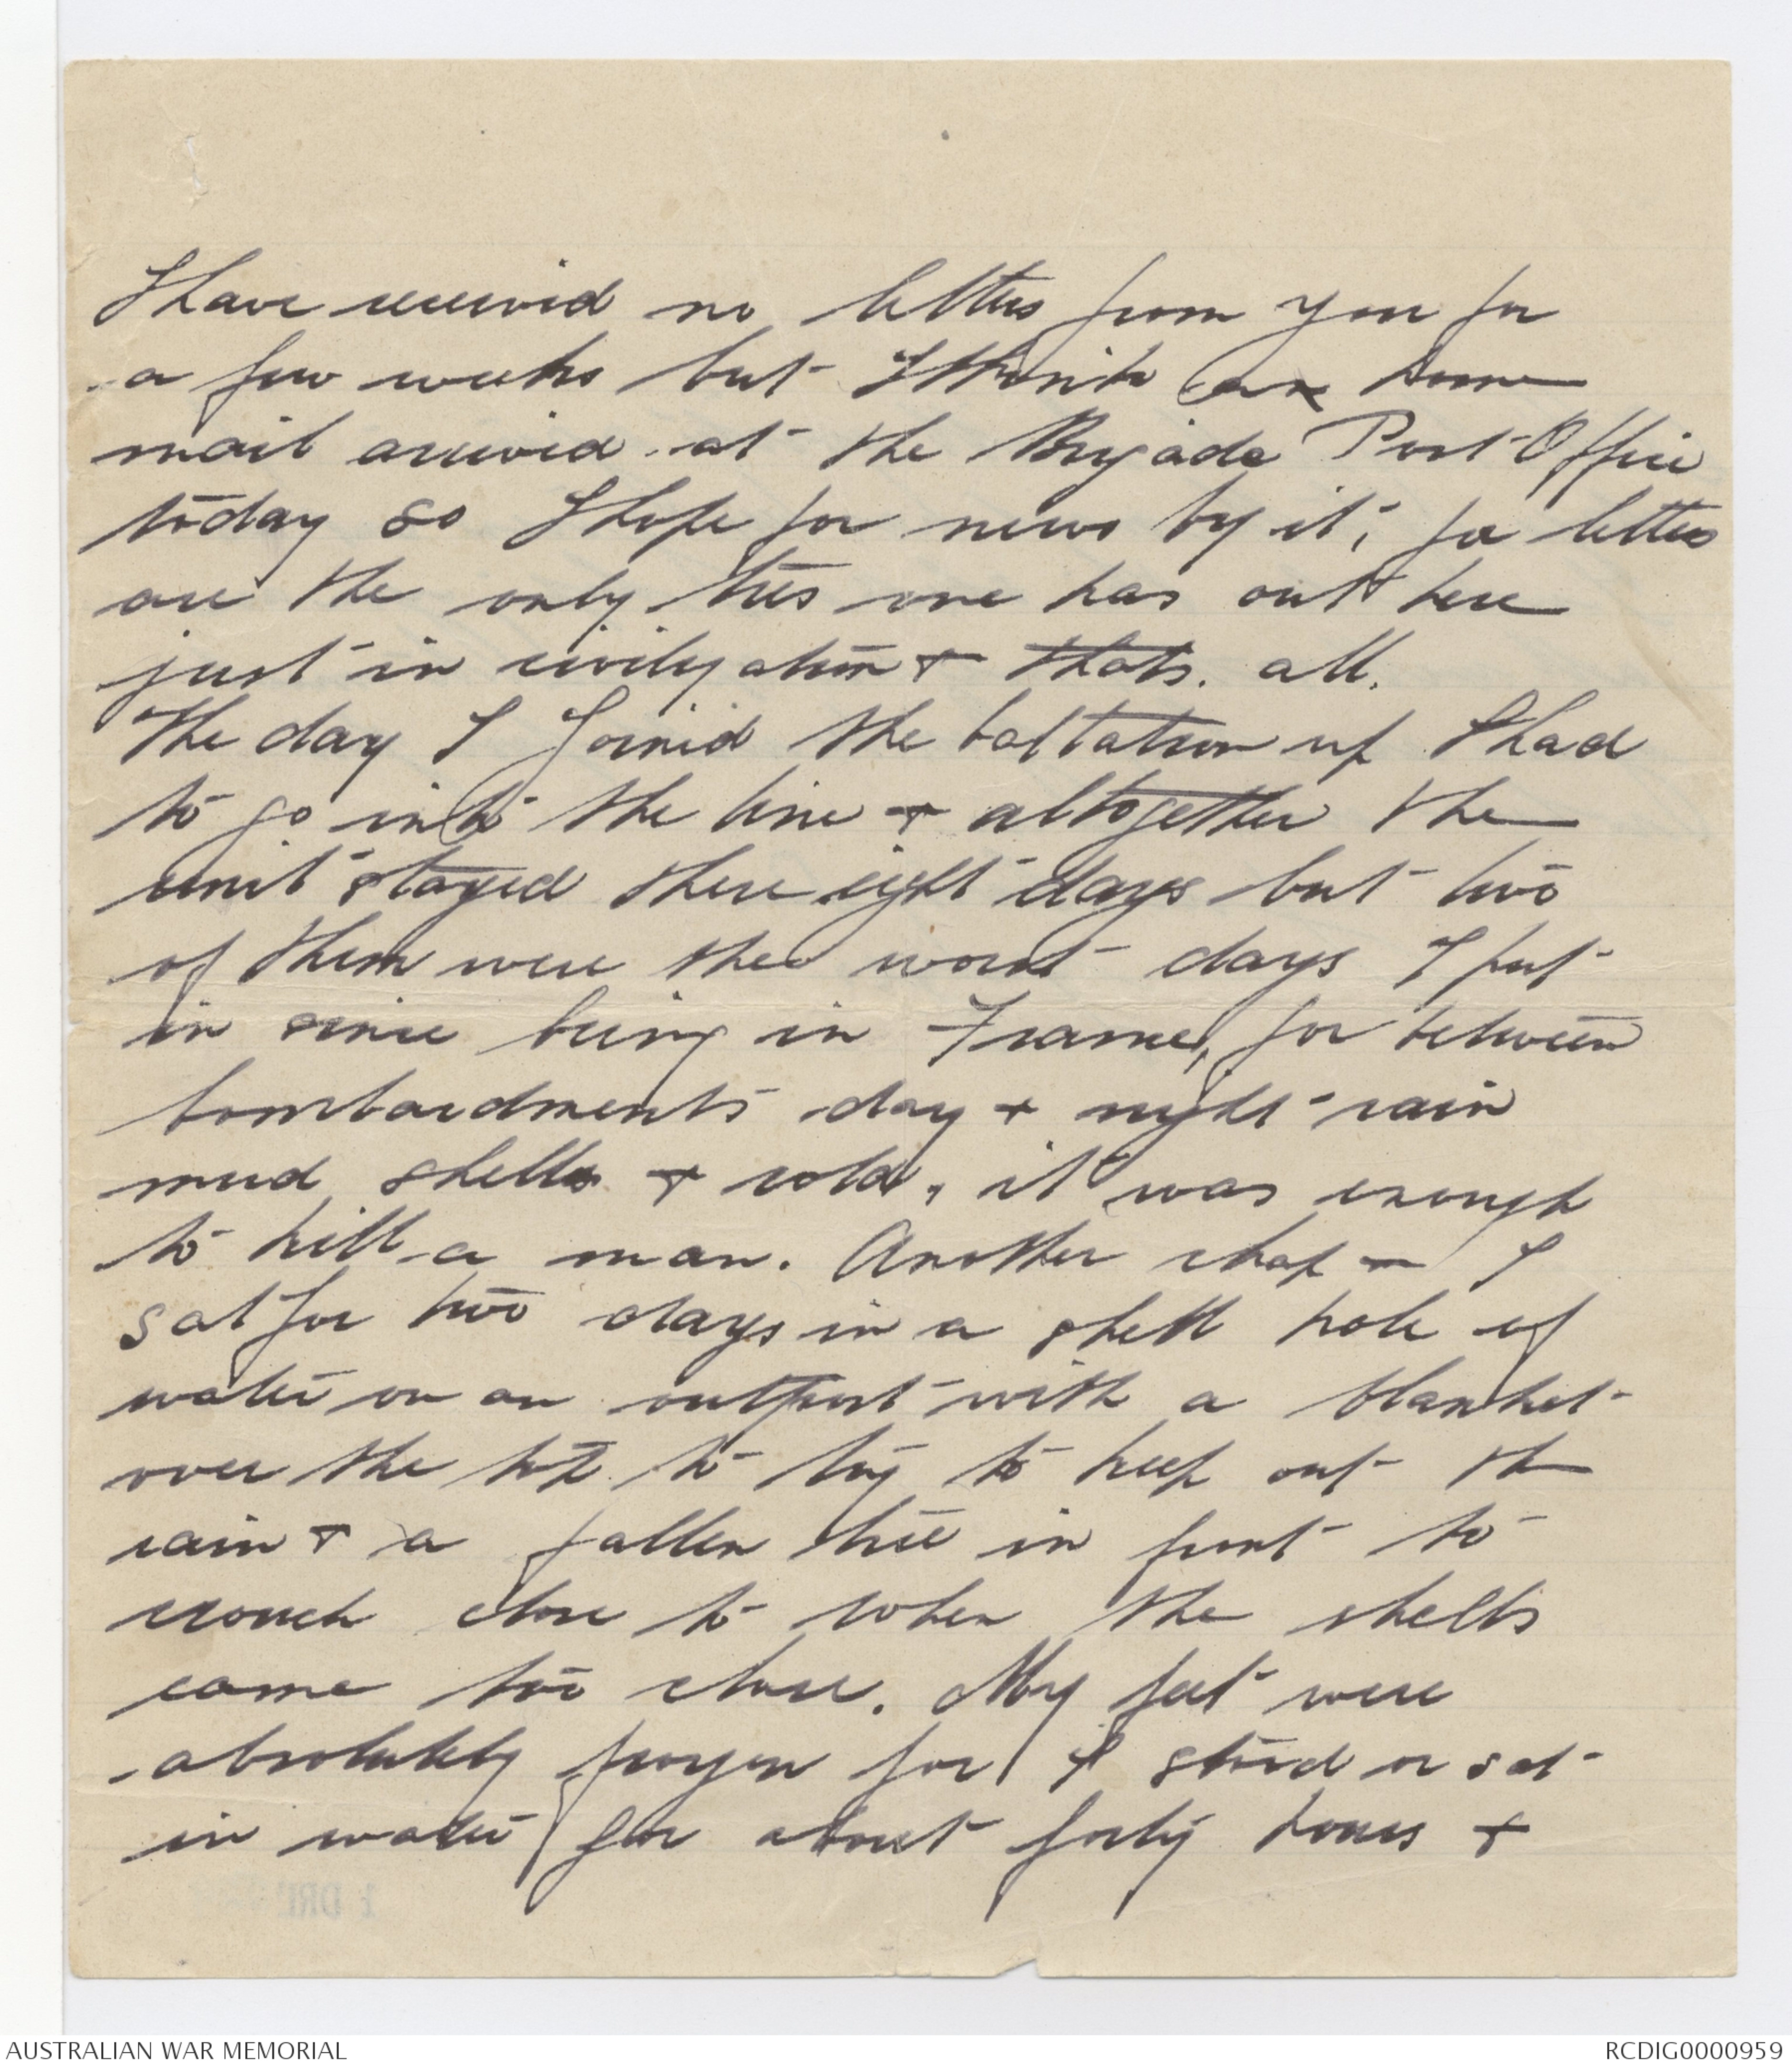 I have received no letters from you for
a few weeks but I think an home
mail arrived at the Brigade Post Office
today so I hope for news by it, for letters
are the only ties one has out here
just in civilization + thats. all.
The day I joined the battation up I had
to go into the line + altogether the
unit stayed there eight days but two
of them were the worst days I put
in since being in France, for between
bombardments day + night rain
mud shells + cold, it was enough
to kill a man. Another chap + I
sat for two days in a shell hole of
water on an outpost with a blanket
over the top to try to keep out the
rain + a fallen tree in front to
crouch close to when the shells
came too close. My feet were
absolutely frozen for I stood or sat
in water for about forty hours +
AUSTRALIAN WAR MEMORIAL
RCDIG0000959